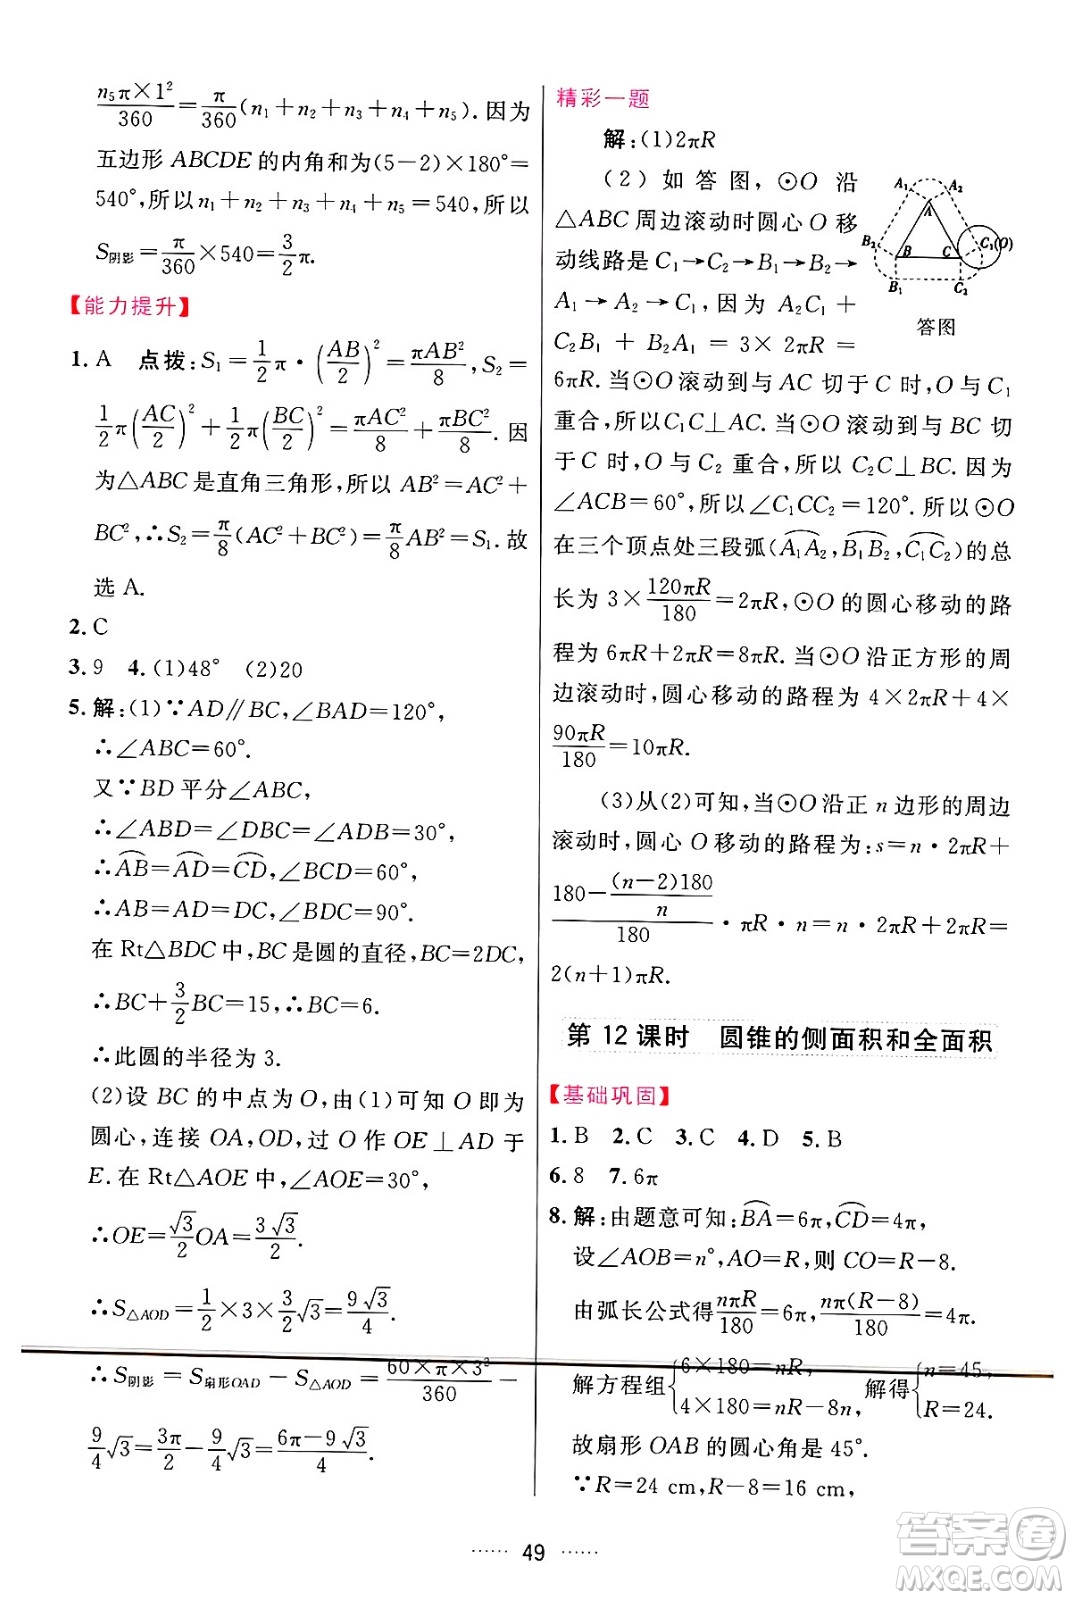 n₅π×1²/360=π/360(n₁+n₂+n₃+n₄+n₅). 因为
五边形 ABCDE 的内角和为(5-2)×180°=
540°,所以n₁+n₂+n₃+n₄+n₅=540,所以
S阴影=π/360×540=3/2π.
【能力提升】
1. A 点拨:S₁=1/2π·(AB/2)²=πAB²/8,S₂=
1/2π(AC/2)²+1/2π(BC/2)²=πAC²/8+πBC²/8. 因
为△ABC 是直角三角形,所以 AB²=AC²+
BC²,∴S₂=π/8(AC²+BC²)=π/8AB²=S₁. 故
选 A.
2. C
3. 9 4. (1)48° (2)20
5. 解:(1)∵AD∥BC,∠BAD=120°,
∴∠ABC=60°.
又∵BD 平分∠ABC,
∴∠ABD=∠DBC=∠ADB=30°,
∴⌒AB=⌒AD=⌒CD,∠BCD=60°,
∴AB=AD=DC,∠BDC=90°.
在 Rt△BDC 中,BC是圆的直径,BC=2DC,
∴BC+3/2BC=15,∴BC=6.
∴此圆的半径为 3.
(2)设 BC 的中点为 O,由(1)可知 O 即为
圆心,连接 OA,OD,过 O 作 OE⊥AD 于
E. 在 Rt△AOE 中,∠AOE=30°,
∴OE=√3/2OA=3√3/2.
∴S△AOD=1/2×3×3/2√3=9√3/4.
∴S阴影=S扇形OAD-S△AOD=60×π×3²/360-
9/4√3=3π/2-9/4√3=6π-9√3/4.
精彩一题
解:(1)2πR
(2)如答图,⊙O 沿
△ABC周边滚动时圆心 O 移
动线路是 C₁→C₂→B₁→B₂→
A₁→A₂→C₁,因为 A₂C₁+
C₂B₁+B₂A₁=3×2πR=
6πR. 当⊙O 滚动到与 AC 切于 C 时,O 与 C₁
重合,所以C₁C⊥AC. 同理,当⊙O 滚动到与BC 切
于 C 时,O 与 C₂ 重合,所以 C₂C⊥BC. 因为
∠ACB=60°,所以∠C₁CC₂=120°. 所以⊙O
在三个顶点处三段弧(⌒A₁A₂,⌒B₁B₂,⌒C₁C₂)的总
长为 3×120πR/180=2πR,⊙O的圆心移动的路
程为 6πR+2πR=8πR. 当⊙O沿正方形的周
边滚动时,圆心移动的路程为 4×2πR+4×
90πR/180=10πR.
(3)从(2)可知,当⊙O沿正 n 边形的周边
滚动时,圆心 O 移动的路程为:s=n·2πR+
(180-(n-2)180/n)/180·πR·n=n·2πR+2πR=
2(n+1)πR.
A₁ A₂
A
B₂ B C C₁(O)
B₁ C₂
答图
第 12 课时 圆锥的侧面积和全面积
【基础巩固】
1. B 2. C 3. C 4. D 5. B
6. 8 7. 6π
8. 解:由题意可知:⌒BA=6π,⌒CD=4π,
设∠AOB=n°,AO=R,则 CO=R-8.
由弧长公式得nπR/180=6π,nπ(R-8)/180=4π,
解方程组{6×180=nR, 4×180=nR-8n, 解得{n=45, R=24.
故扇形 OAB 的圆心角是 45°.
∵R=24 cm,R-8=16 cm,
······ 49 ······
答案卷
MXQE.COM